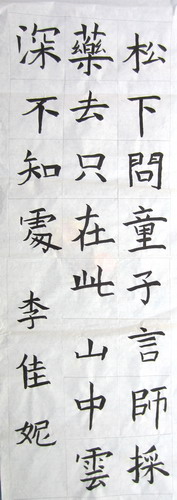 松下問童子言師採
藥去只在此山中雲
深不知處李佳妮